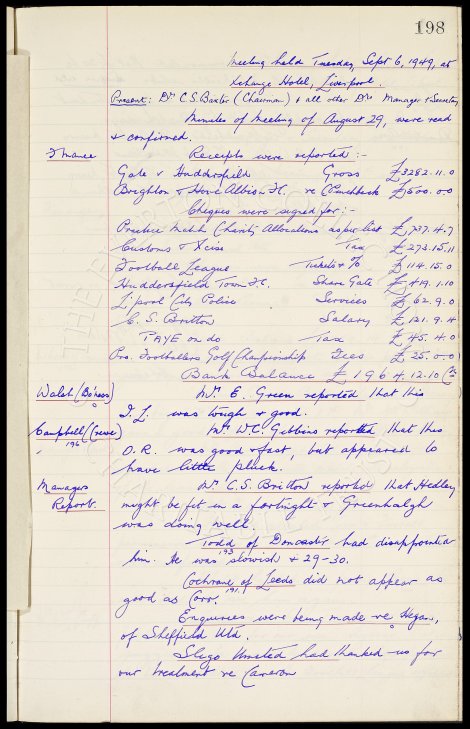 198
Meeting held Tuesday, Sept 6, 1949, at
Xchange Hotel, Liverpool.
Present: Dr C.S. Baxter (Chairman) & all other Drs Manager & Secretary
Minutes of Meeting of August 29, were read
& confirmed.
Finance Receipts were reported :-
Gate v Huddersfield Gross £3282.11.0
Brighton & Hove Albion F.C. re Pinchbeck £500.0.0
Cheques were signed for :-
Practice Match Charity Allocations as per list £737.4.7
Customs & Xcise Tax £273.15.11
Football League Tickets & % £114.15.0
Huddersfield Town F.C. Share Gate £419.1.10
L'pool City Police Services £62.9.0
C. S. Britton Salary £121.9.4
PAYE on do Tax £45.4.0
Pro. Footballers Golf Championship Fees £25.0.0
Bank Balance £1964.12.10
Walsh (Bo'ness) Mr E. Green reported that this
I.L. was tough & good.
Campbell (Crewe) Mr W.C. Gibbins reported that this
196
O.R. was good & fast, but appeared to
have little pluck.
Managers Mr C.S. Britton reported that Hedley
Report. might be fit in a fortnight & Greenhalgh
was doing well.
Todd of Doncaster had disappointed
him. He was slowish & 29-30.
193
Cochrane of Leeds did not appear as
191
good as Corr.
Enquiries were being made re Hagan,
of Sheffield Utd.
Sligo United had thanked us for
our treatment re Cameron